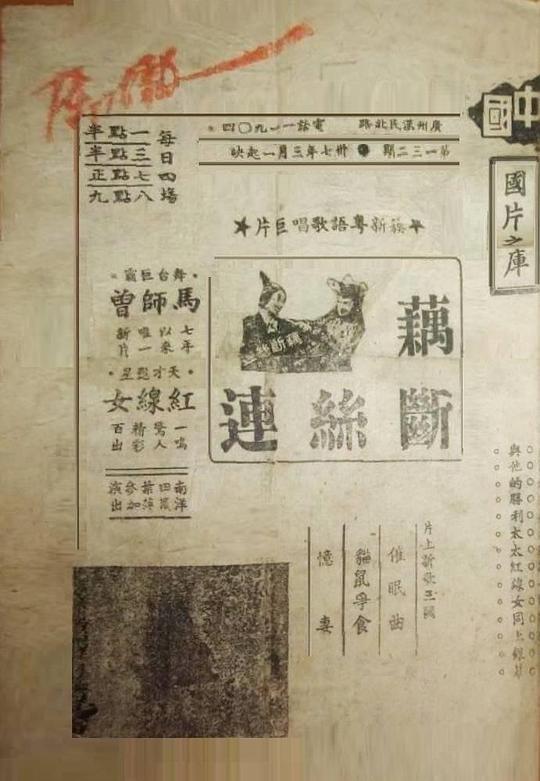 中國
國片之庫
廣州漢民北路 電話一一九〇四
第一三二期 卅七年三月一起映
每日四場
一點半
三點半
七點正
八點九
★簇新粵語歌唱巨片★
藕
斷絲連
舞台巨霸
馬師曾
七年以來唯一新片
天才艷星
紅線女
一鳴驚人精彩百出
南洋
葉萍參加演出
片上新歌三
催眠曲
貓鼠爭食
憶妻
與他的勝利太太紅線女同上銀幕